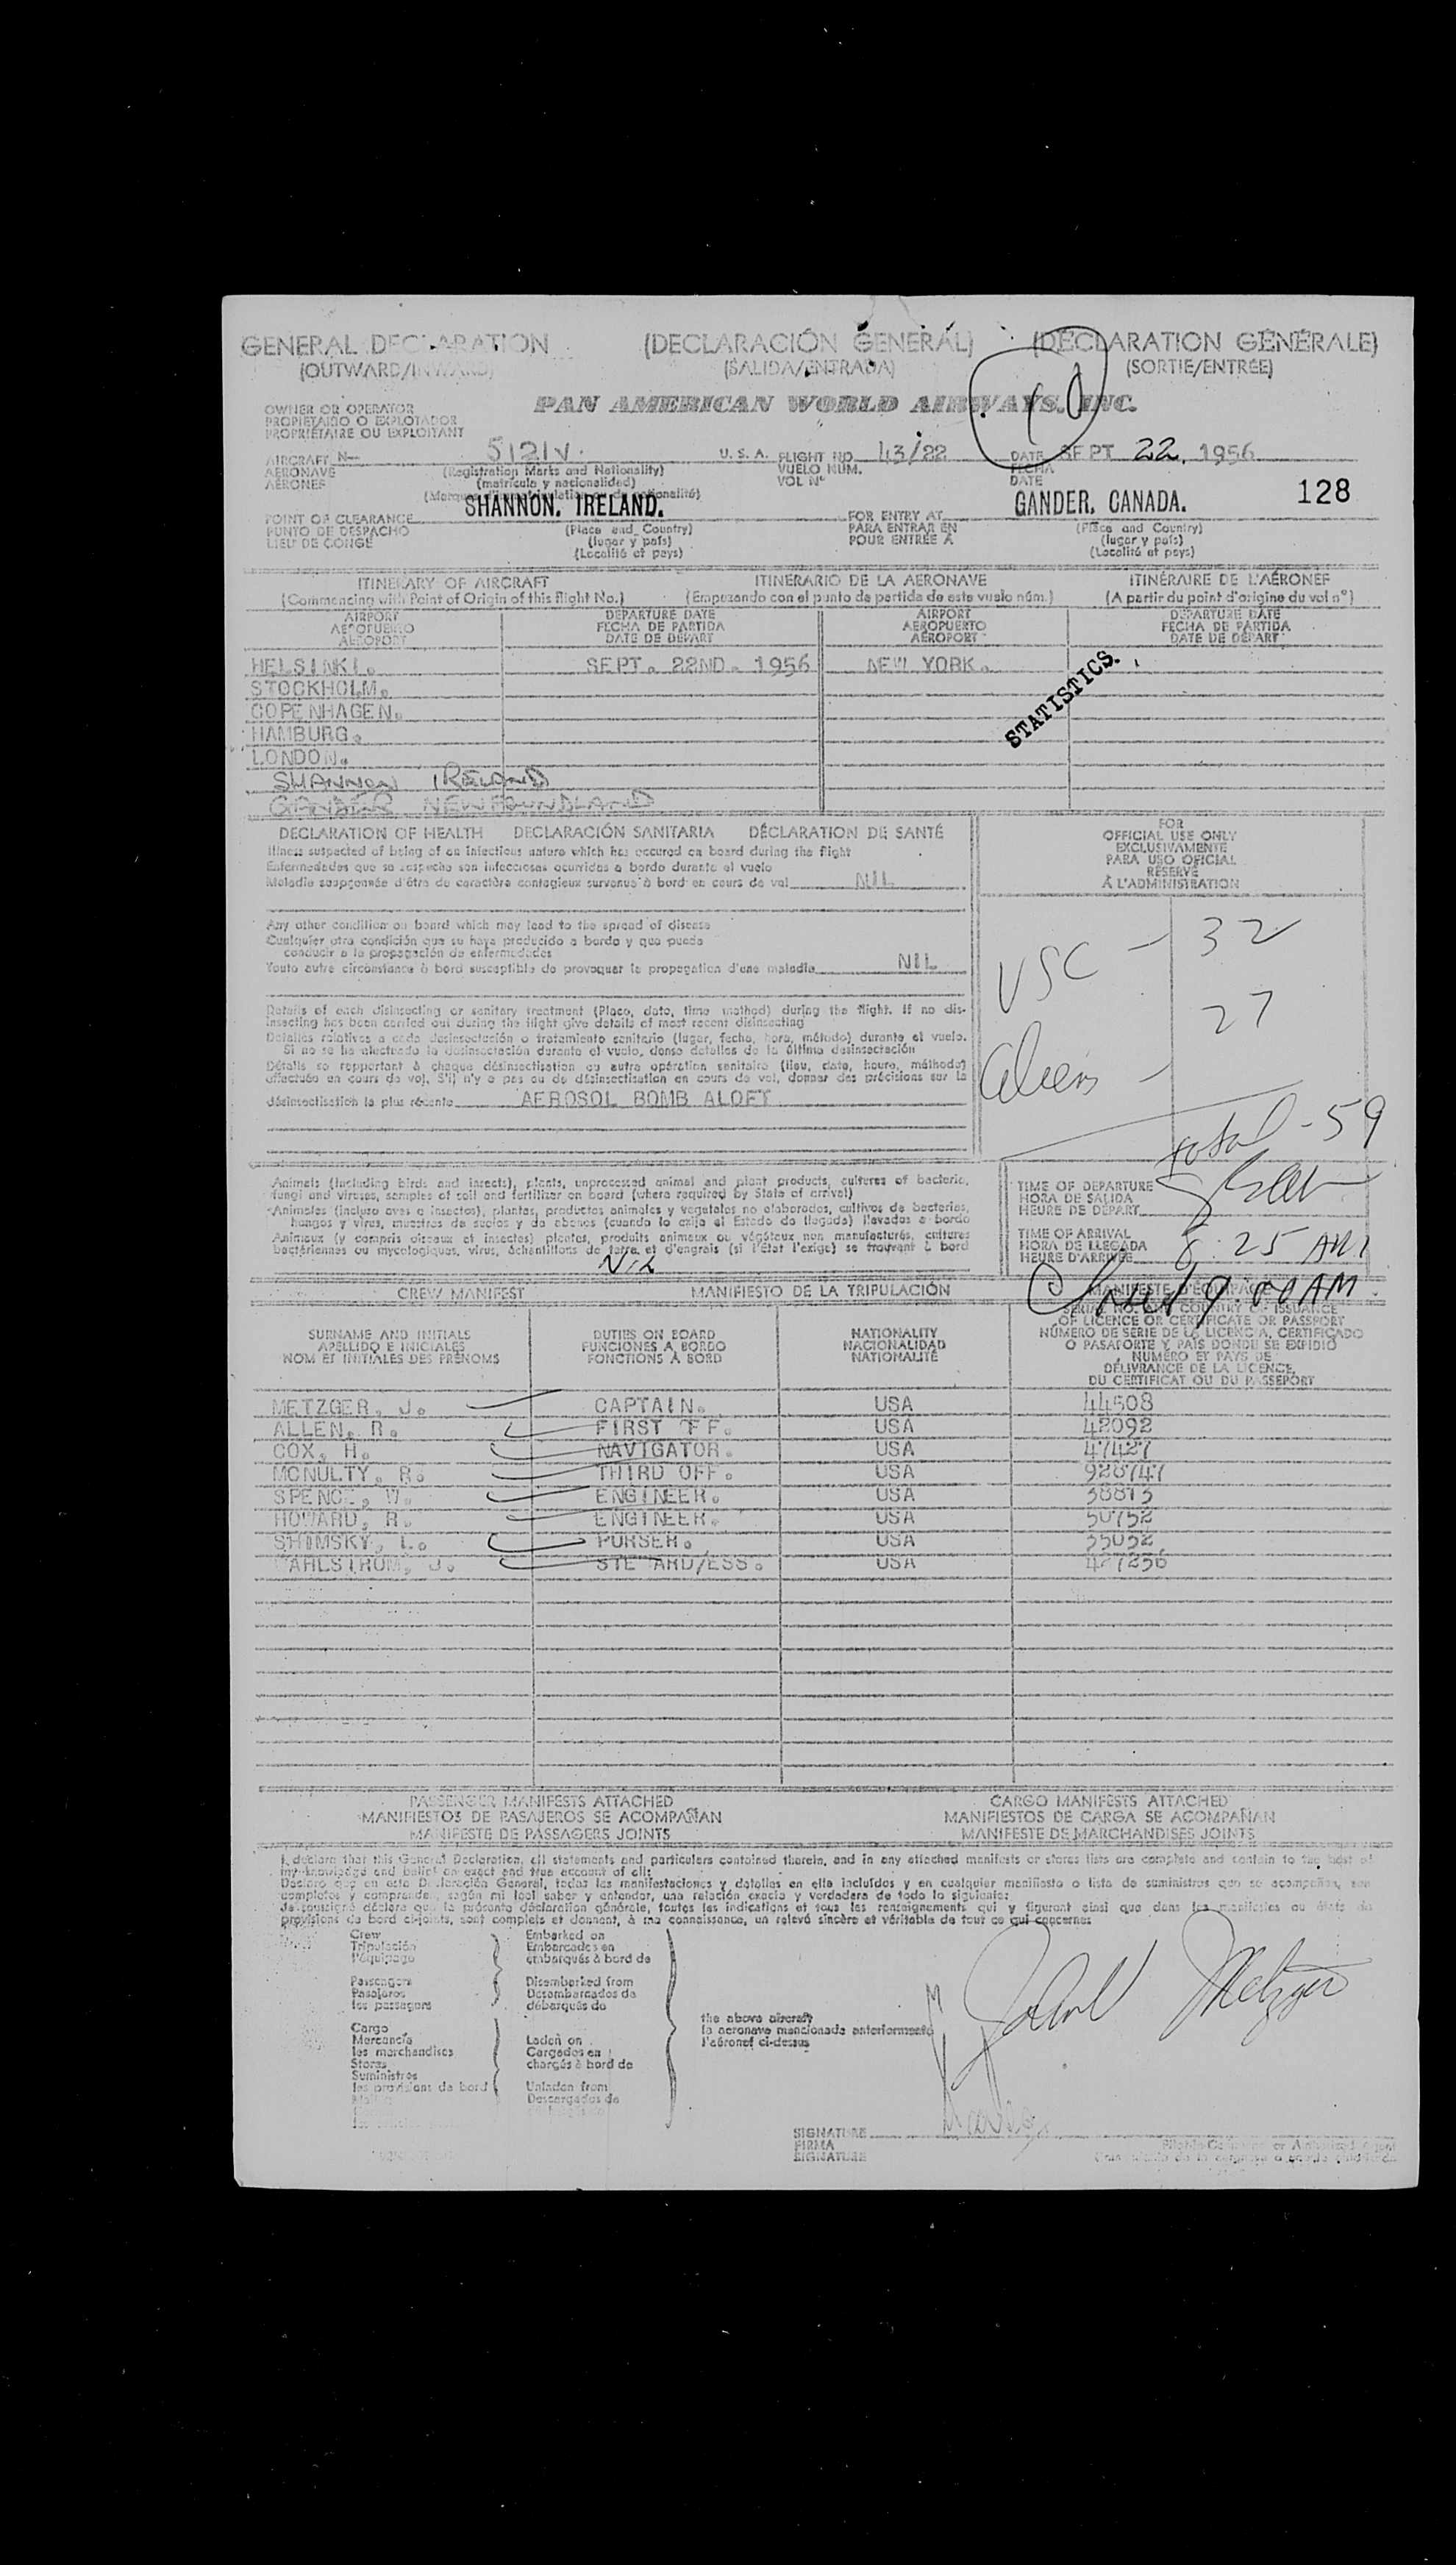 GENERAL DECLARATION (DECLARACIÓN GENERAL) (DÉCLARATION GÉNÉRALE)
(OUTWARD/INWARD) (SALIDA/ENTRADA) (SORTIE/ENTRÉE)
OWNER OR OPERATOR
PROPIETARIO O EXPLOTADOR
PROPRIÉTAIRE OU EXPLOITANT
PAN AMERICAN WORLD AIRWAYS, INC.
AIRCRAFT N— 5121V. U. S. A. FLIGHT NO. 43/22 DATE SEPT 22, 1956
AÉRONAVE (Registration Marks and Nationality) VUELO NUM. FECHA
AÉRONEF (matrícula y nacionalidad) VOL Nº DATE
(Marques d'immatriculation ou de nationalité)
SHANNON, IRELAND. GANDER, CANADA. 128
POINT OF CLEARANCE (Place and Country) FOR ENTRY AT (Place and Country)
PUNTO DE DESPACHO (lugar y país) PARA ENTRAR EN (lugar y país)
LIEU DE CONGÉ (Localité et pays) POUR ENTRÉE A (Localité et pays)
ITINERARY OF AIRCRAFT ITINERARIO DE LA AERONAVE ITINÉRAIRE DE L'AÉRONEF
(Commencing with Point of Origin of this flight No.) (Empezando con el punto de partida de este vuelo núm.) (A partir du point d'origine du vol nº)
AIRPORT DEPARTURE DATE AIRPORT DEPARTURE DATE
AEROPUERTO FECHA DE PARTIDA AEROPUERTO FECHA DE PARTIDA
AÉROPORT DATE DE DÉPART AÉROPORT DATE DE DÉPART
HELSINKI. SEPT. 22ND. 1956 NEW YORK.
STOCKHOLM.
COPENHAGEN.
HAMBURG.
LONDON.
SHANNON IRELAND
GANDER NEWFOUNDLAND
STATISTICS.
DECLARATION OF HEALTH DECLARACIÓN SANITARIA DÉCLARATION DE SANTÉ
Illness suspected of being of an infectious nature which has occured on board during the flight
Enfermedades que se sospecha son infecciosas ocurridas a bordo durante el vuelo
Maladie soupçonnée d'être de caractère contagieux survenue à bord en cours de vol NIL
Any other condition on board which may lead to the spread of disease
Cualquier otra condición que se haya producido a bordo y que pueda
conducir a la propagación de enfermedades
Toute autre circonstance à bord susceptible de provoquer la propagation d'une maladie NIL
Details of each disinsecting or sanitary treatment (Place, date, time method) during the flight. If no dis-
insecting has been carried out during the flight give details of most recent disinsecting
Detalles relativos a cada desinsectación o tratamiento sanitario (lugar, fecha, hora, método) durante el vuelo.
Si no se ha efectuado la desinsectación durante el vuelo, dense detalles de la última desinsectación
Détails se rapportant à chaque désinsectisation ou autre opération sanitaire (lieu, date, heure, méthode)
effectuée en cours de vol. S'il n'y a pas eu de désinsectisation en cours de vol, donner des précisions sur la
désinsectisation la plus récente AEROSOL BOMB ALOFT
FOR
OFFICIAL USE ONLY
EXCLUSIVAMENTE
PARA USO OFICIAL
RESERVÉ
À L'ADMINISTRATION
USC - 32
Aliens - 27
total - 59
Animals (including birds and insects), plants, unprocessed animal and plant products, cultures of bacteria,
fungi and viruses, samples of soil and fertilizer on board (where required by State of arrival)
Animales (incluso aves e insectos), plantas, productos animales y vegetales no elaborados, cultivos de bacterias,
hongos y virus, muestras de suelos y de abonos (cuando lo exija el Estado de llegada) llevados a bordo
Animaux (y compris oiseaux et insectes) plantes, produits animaux ou végétaux non manufacturés, cultures
bactériennes ou mycologiques, virus, échantillons de terre et d'engrais (si l'État l'exige) se trouvant à bord
Nil
TIME OF DEPARTURE
HORA DE SALIDA
HEURE DE DÉPART
TIME OF ARRIVAL
HORA DE LLEGADA 8:25 AM
HEURE D'ARRIVÉE
9:00 AM
CREW MANIFEST MANIFIESTO DE LA TRIPULACIÓN MANIFESTE D'ÉQUIPAGE
SURNAME AND INITIALS DUTIES ON BOARD NATIONALITY SERIAL NO. AND COUNTRY OF ISSUANCE
APELLIDO E INICIALES FUNCIONES A BORDO NACIONALIDAD OF LICENCE OR CERTIFICATE OR PASSPORT
NOM ET INITIALES DES PRÉNOMS FONCTIONS À BORD NATIONALITÉ NÚMERO DE SERIE DE LA LICENCIA, CERTIFICADO
O PASAPORTE Y PAÍS DONDE SE EXPIDIÓ
NUMÉRO ET PAYS DE
DÉLIVRANCE DE LA LICENCE,
DU CERTIFICAT OU DU PASSEPORT
METZGER, J. CAPTAIN. USA 44508
ALLEN, R. FIRST FF. USA 42092
COX, H. NAVIGATOR. USA 47427
MCNULTY, R. THIRD OFF. USA 928747
SPENCE, W. ENGINEER. USA 38813
HOWARD, R. ENGINEER. USA 50752
SHIMSKY, L. PURSER. USA 35052
WAHLSTROM, J. STE ARD/ESS. USA 427236
PASSENGER MANIFESTS ATTACHED CARGO MANIFESTS ATTACHED
MANIFIESTOS DE PASAJEROS SE ACOMPAÑAN MANIFIESTOS DE CARGA SE ACOMPAÑAN
MANIFESTE DE PASSAGERS JOINTS MANIFESTE DE MARCHANDISES JOINTS
I declare that this General Declaration, all statements and particulars contained therein, and in any attached manifests or stores lists are complete and contain to the best of
my knowledge and belief an exact and true account of all:
Declaro que en esta Declaración General, todas las manifestaciones y detalles en ella incluídos y en cualquier manifiesto o lista de suministros que se acompañan, son
completos y comprenden, según mi leal saber y entender, una relación exacta y verdadera de todo lo siguiente:
Je soussigné déclare que la présente déclaration générale, toutes les indications et tous les renseignements qui y figurent ainsi que dans les manifestes ou états de
provisions de bord ci-joints, sont complets et donnent, à ma connaissance, un relevé sincère et véritable de tout ce qui concerne:
Crew Embarked on
Tripulación Embarcados en
l'équipage embarqués à bord de
Passengers Disembarked from
Pasajeros Desembarcados de
les passagers débarqués de
the above aircraft
la aeronave mencionada anteriormente
l'aéronef ci-dessus
Cargo
Mercancía Laden on
les marchandises Cargados en
Stores chargés à bord de
Suministros
les provisions de bord Unladen from
Descargados de
John Metzger
SIGNATURE
FIRMA
SIGNATURE